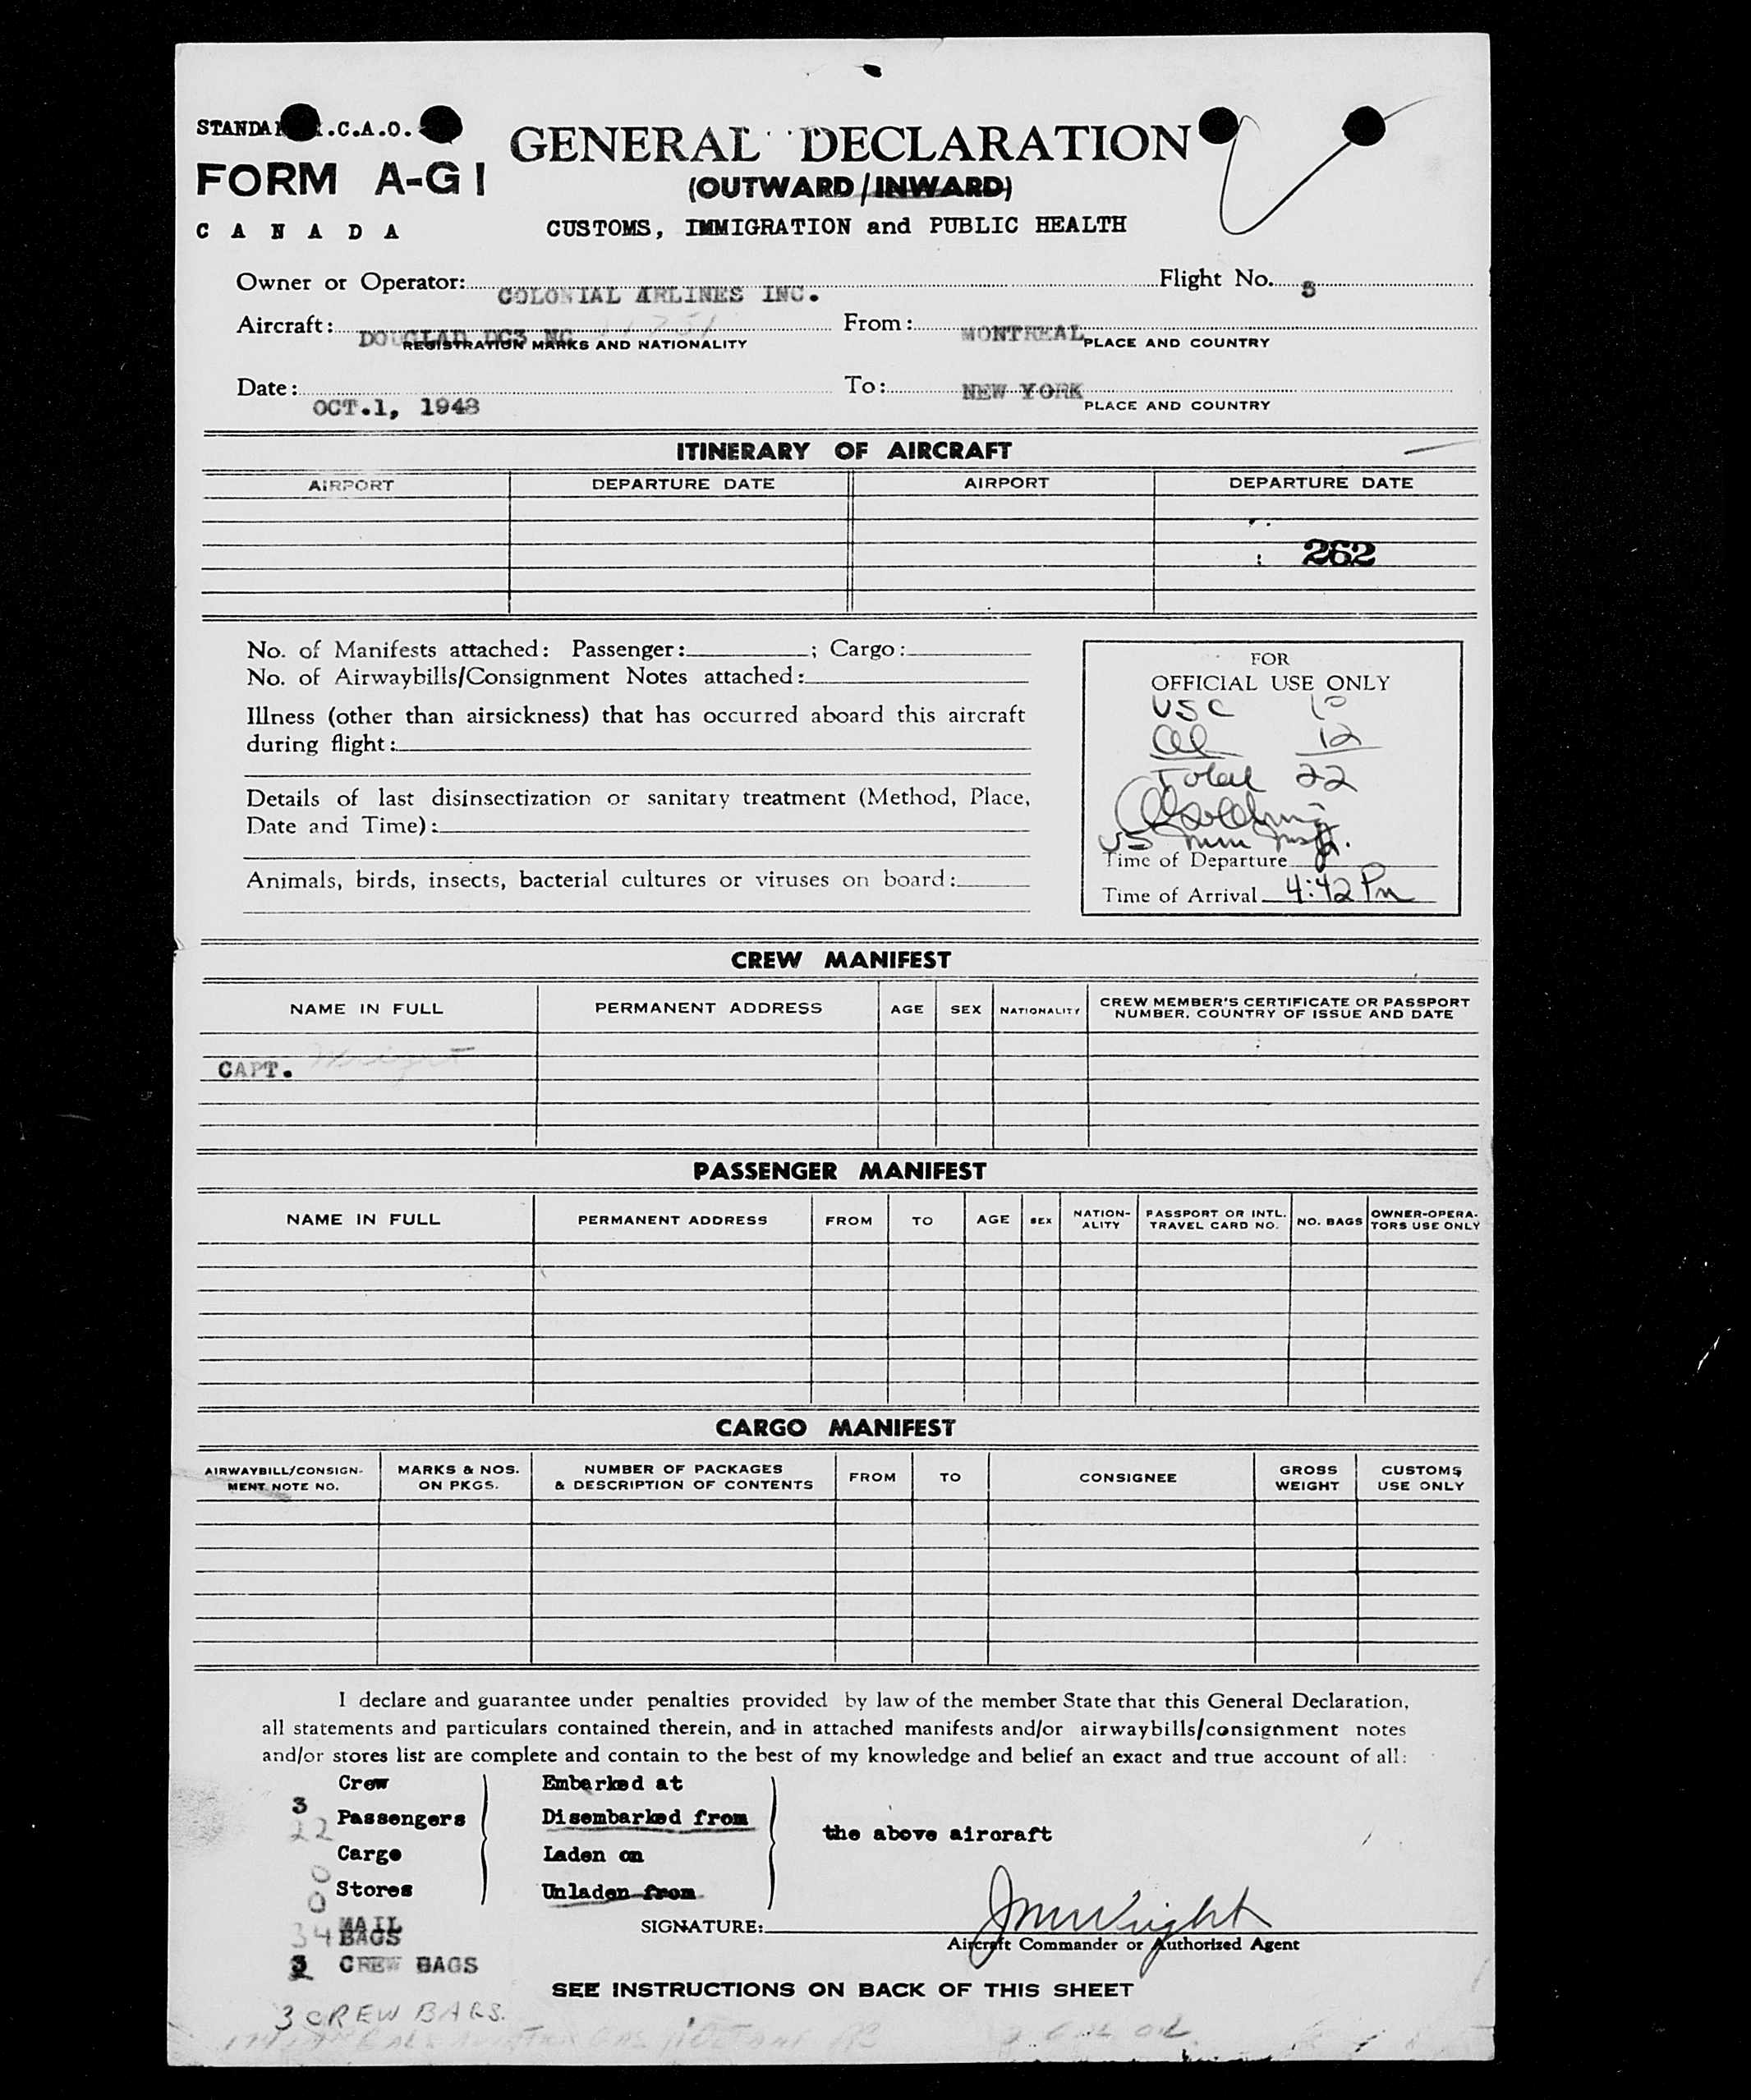 STANDA .C.A.O.
FORM A-G1
CANADA
GENERAL DECLARATION
(OUTWARD/INWARD)
CUSTOMS, IMMIGRATION and PUBLIC HEALTH
Owner or Operator: COLONIAL ARLINES INC. Flight No. 5
Aircraft: DOUGLAD DC3 NC From: MONTREAL
REGISTRATION MARKS AND NATIONALITY PLACE AND COUNTRY
Date: OCT.1, 1948 To: NEW YORK
PLACE AND COUNTRY
ITINERARY OF AIRCRAFT
AIRPORT DEPARTURE DATE AIRPORT DEPARTURE DATE
262
No. of Manifests attached: Passenger: ; Cargo:
No. of Airwaybills/Consignment Notes attached:
Illness (other than airsickness) that has occurred aboard this aircraft
during flight:
Details of last disinsectization or sanitary treatment (Method, Place,
Date and Time):
Animals, birds, insects, bacterial cultures or viruses on board:
FOR
OFFICIAL USE ONLY
USC 10
Al 12
Total 22
US Imm Insp.
Time of Departure
Time of Arrival 4:42 Pm
CREW MANIFEST
NAME IN FULL PERMANENT ADDRESS AGE SEX NATIONALITY CREW MEMBER'S CERTIFICATE OR PASSPORT NUMBER, COUNTRY OF ISSUE AND DATE
CAPT. Wright
PASSENGER MANIFEST
NAME IN FULL PERMANENT ADDRESS FROM TO AGE SEX NATION-ALITY PASSPORT OR INTL. TRAVEL CARD NO. NO. BAGS OWNER-OPERA-TORS USE ONLY
CARGO MANIFEST
AIRWAYBILL/CONSIGN-MENT NOTE NO. MARKS & NOS. ON PKGS. NUMBER OF PACKAGES & DESCRIPTION OF CONTENTS FROM TO CONSIGNEE GROSS WEIGHT CUSTOMS USE ONLY
I declare and guarantee under penalties provided by law of the member State that this General Declaration,
all statements and particulars contained therein, and in attached manifests and/or airwaybills/consignment notes
and/or stores list are complete and contain to the best of my knowledge and belief an exact and true account of all:
Crew Embarked at
3
22 Passengers Disembarked from
the above aircraft
Cargo Laden on
0
0 Stores Unladen from
34 MAIL BAGS
SIGNATURE: JMWright
Aircraft Commander or Authorized Agent
3 CREW BAGS
SEE INSTRUCTIONS ON BACK OF THIS SHEET
3 CREW BAGS.